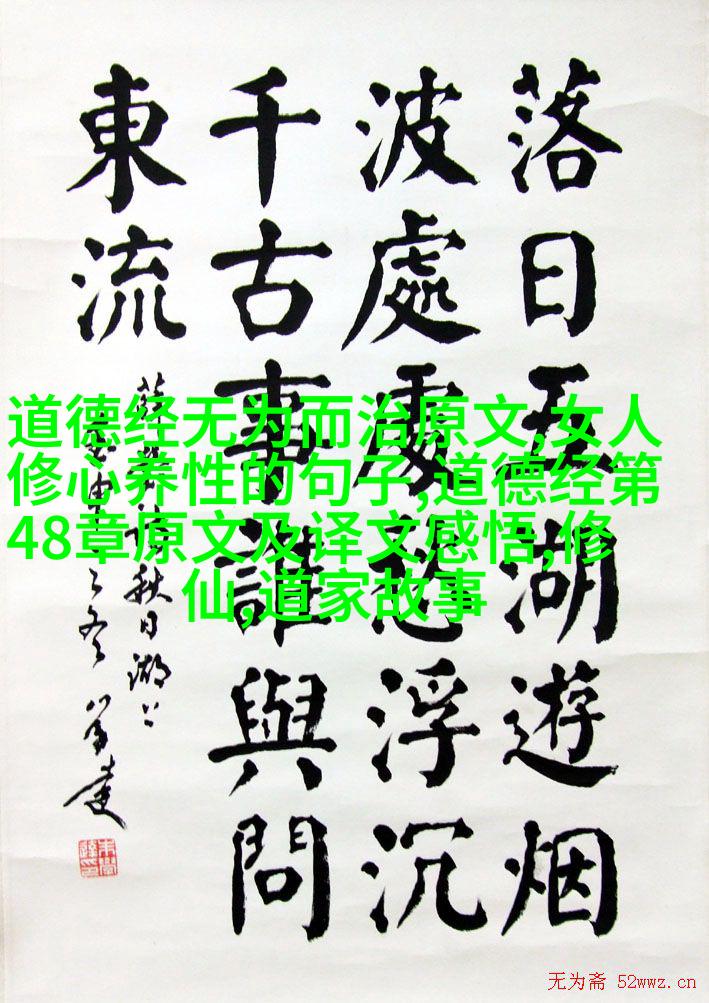 落日五湖遊烟
波處處愁浮沉
千古事誰與問
東流
薛瑩詩秋日湖上
道德经无为而治原文,女人
修心养性的句子,道德经第
48章原文及译文感悟,修
仙,道家故事
无为斋 52wwz.cn